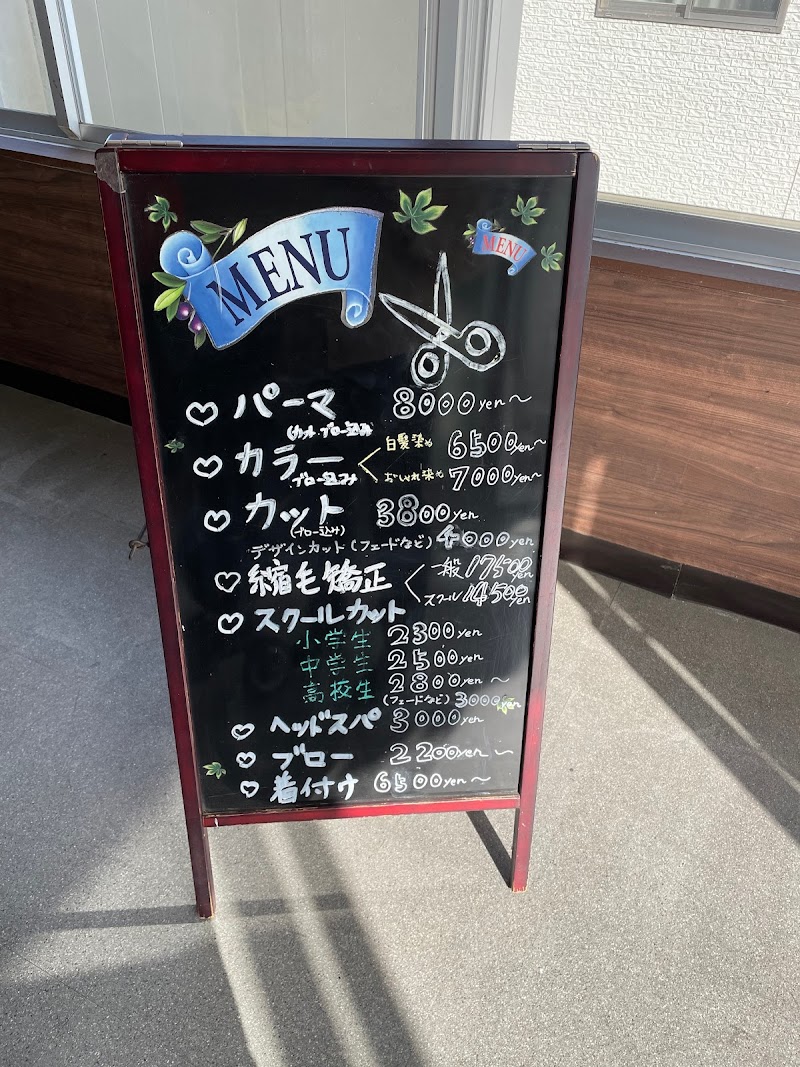 MENU
MENU
パーマ 8000yen～
(カット ブロー込み)
カラー 白髪染め 6500yen～
ブロー込み おしゃれ染め 7000yen～
カット 3800yen
(ブロー込み)
デザインカット(フェードなど) 4000yen
縮毛矯正 一般 17500yen
スクール 14500yen
スクールカット
小学生 2300yen
中学生 2500yen
高校生 2800yen ～
(フェードなど) 3000yen
ヘッドスパ 3000yen
ブロー 2200yen ～
着付け 6500yen ～